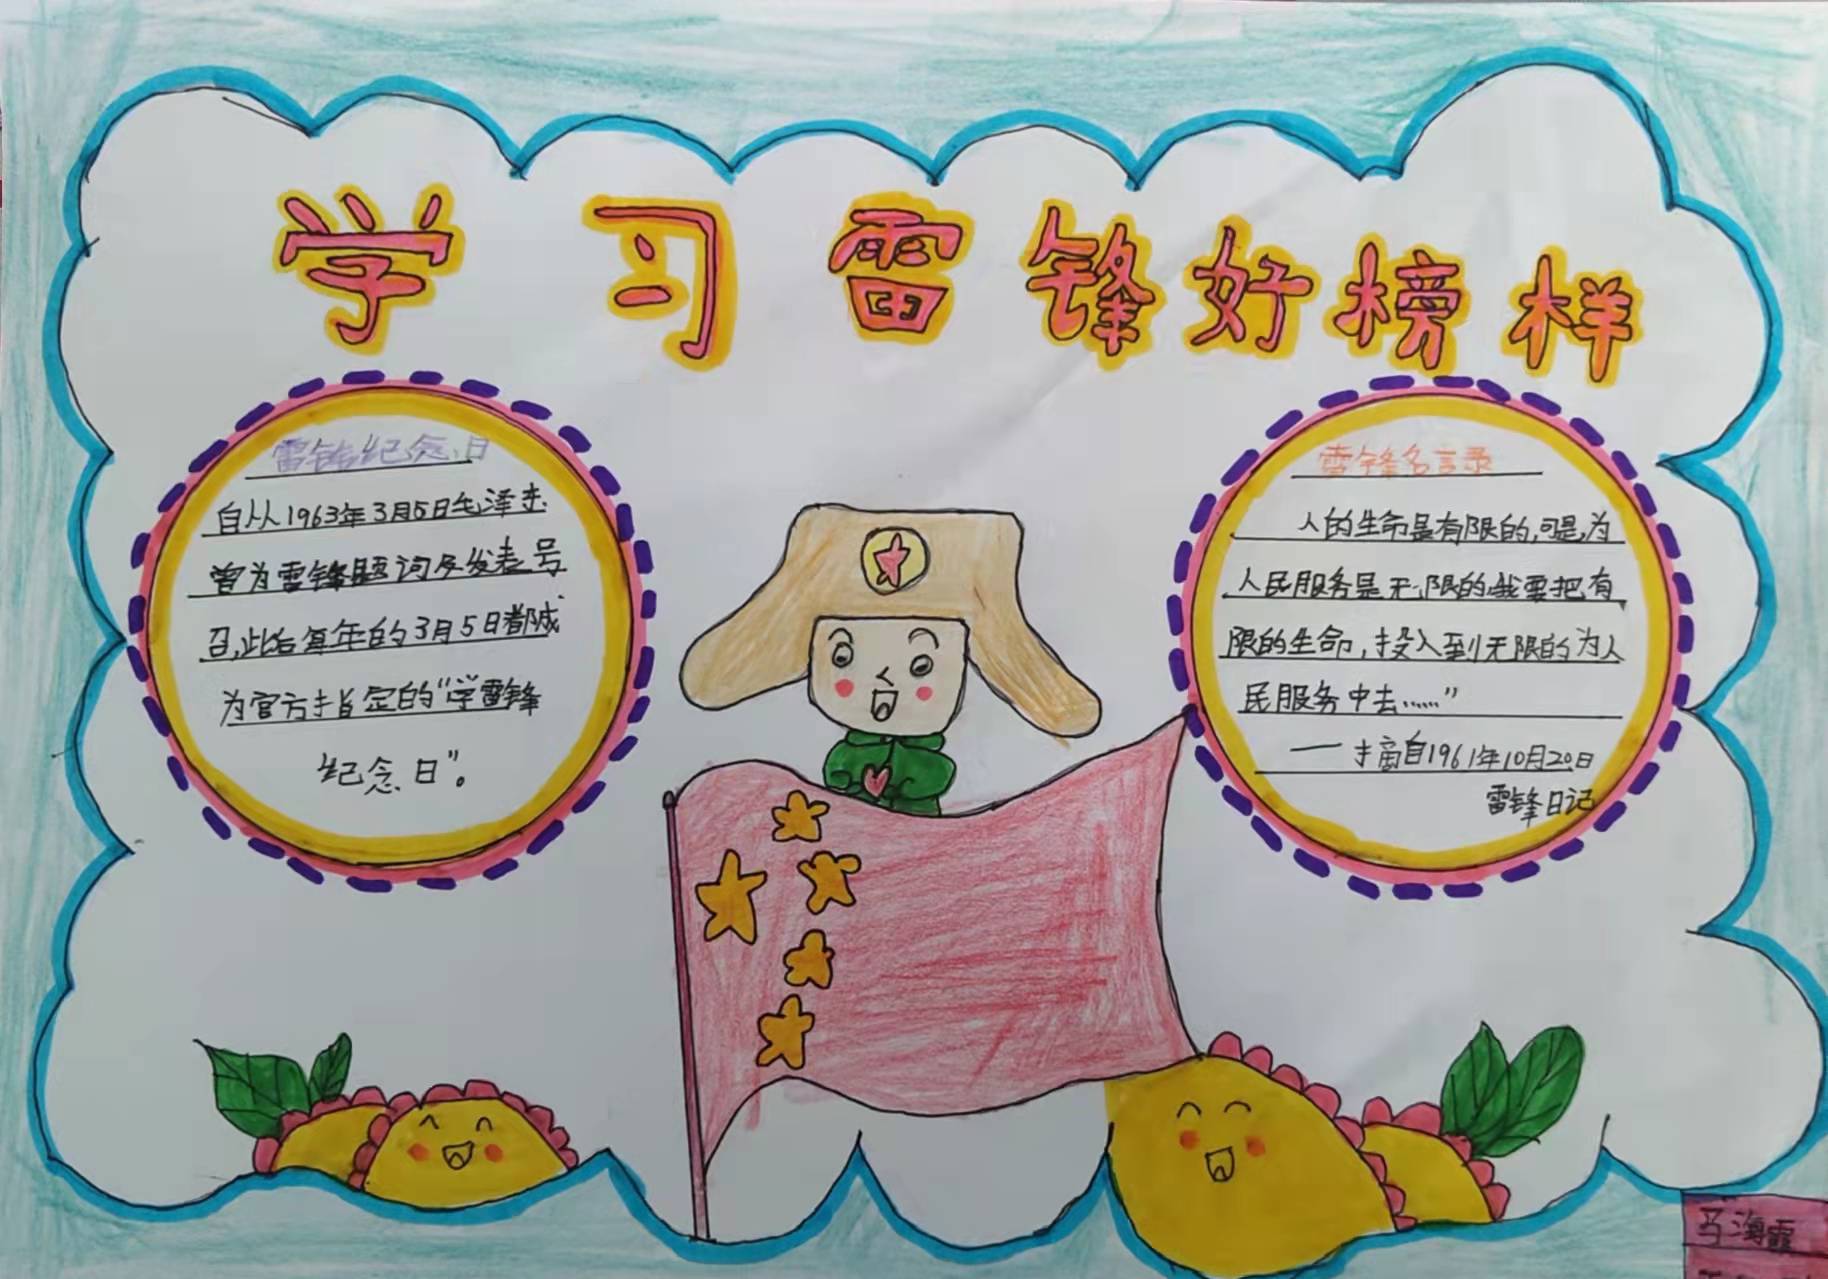 学习雷锋好榜样
雷锋纪念日
自从1963年3月5日毛泽东
曾为雷锋题词及发表号
召,此后每年的3月5日都成
为官方指定的“学雷锋
纪念日”。
雷锋名言录
人的生命是有限的,可是,为
人民服务是无限的,我要把有
限的生命,投入到无限的为人
民服务中去……”
——摘自1961年10月20日
雷锋日记
马海霞